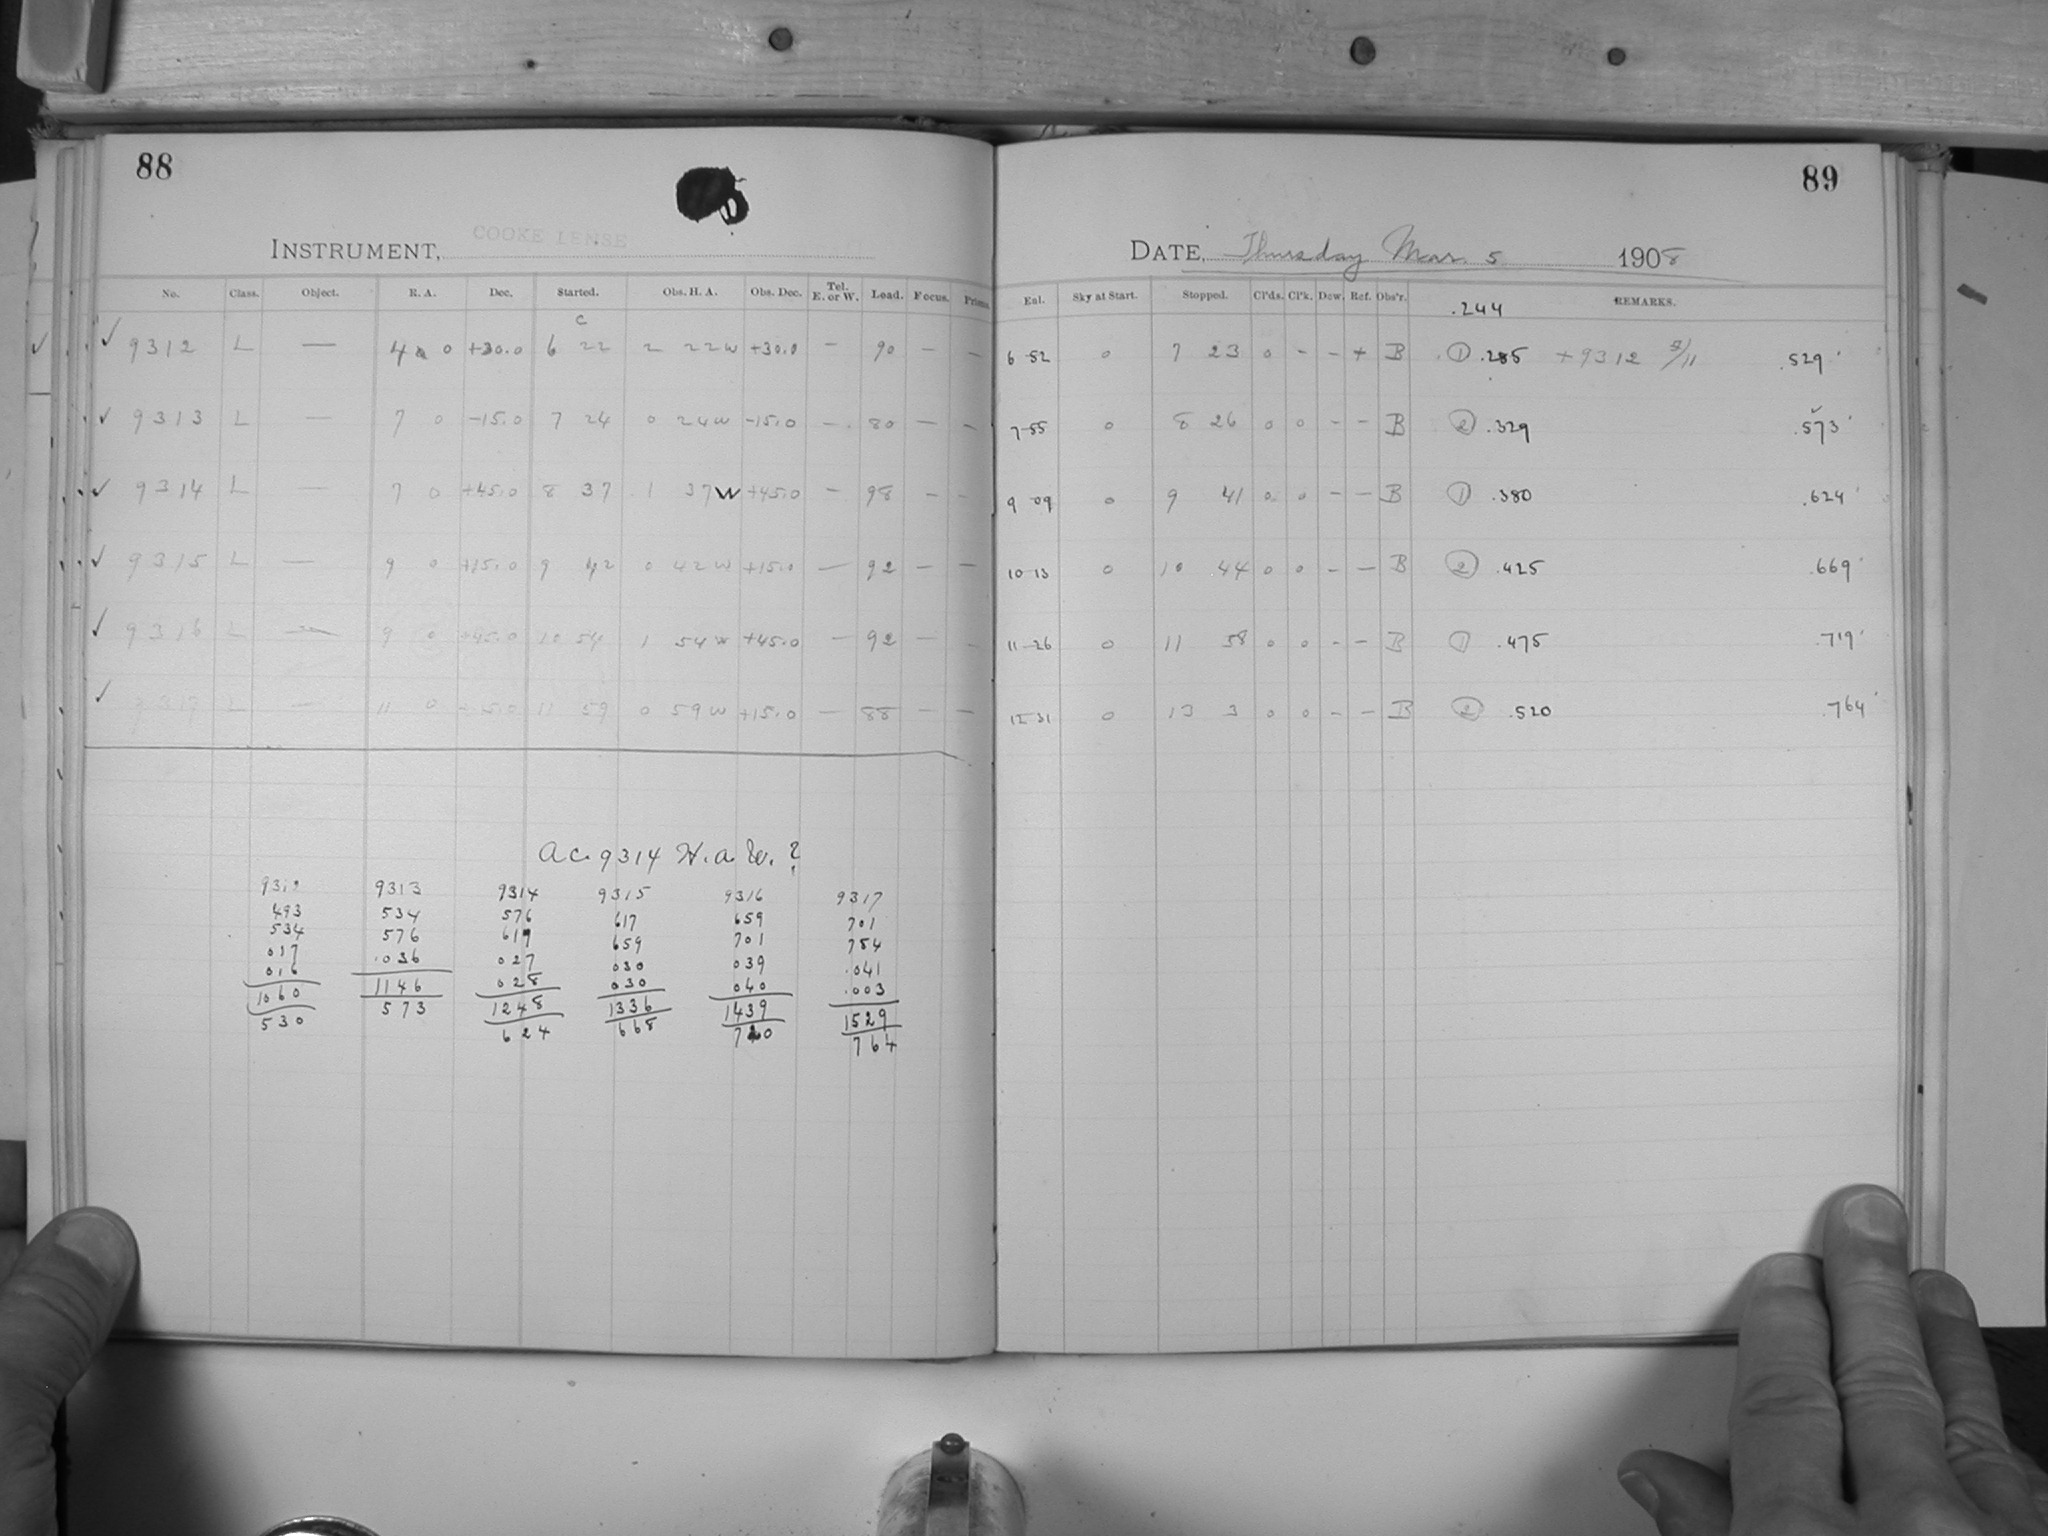 88
COOKE LENSE
INSTRUMENT,
No. Class. Object. R. A. Dec. Started. Obs. H. A. Obs. Dec. Tel. E. or W. Load. Focus. Prisms
c
✓ 9312 L — 4 0 +30.0 6 22 2 22w +30.0 - 90 - -
✓ 9313 L — 7 0 -15.0 7 24 0 24w -15.0 - 80 - -
✓ 9314 L — 7 0 +45.0 8 37 1 37W +45.0 - 98 - -
✓ 9315 L — 9 0 +15.0 9 42 0 42w +15.0 — 92 - -
✓ 9316 L — 9 0 +45.0 10 54 1 54w +45.0 - 92 - -
✓ 9317 L — 11 0 +15.0 11 59 0 59w +15.0 — 88 — —
ac. 9314 H.a. W. ?
9312 9313 9314 9315 9316 9317
493 534 576 617 659 701
534 576 617 659 701 754
017 .036 027 030 039 .041
016 028 030 040 .003
1060 1146 1248 1336 1439 1529
530 573 624 668 720 764
89
DATE, Thursday Mar. 5 1908
Exl. Sky at Start. Stopped. Cl'ds. Cl'k. Dew. Ref. Obs'r. REMARKS.
.244
6-52 0 7 23 0 - - + B ① .285 +9312 3/11 .529
7-55 0 8 26 0 0 - - B ② .329 .573
9-09 0 9 41 0 0 - - B ① .380 .624
10-13 0 10 44 0 0 - - B ② .425 .669
11-26 0 11 58 0 0 - - B ① .475 .719
12-31 0 13 3 0 0 - - B ② .520 .764